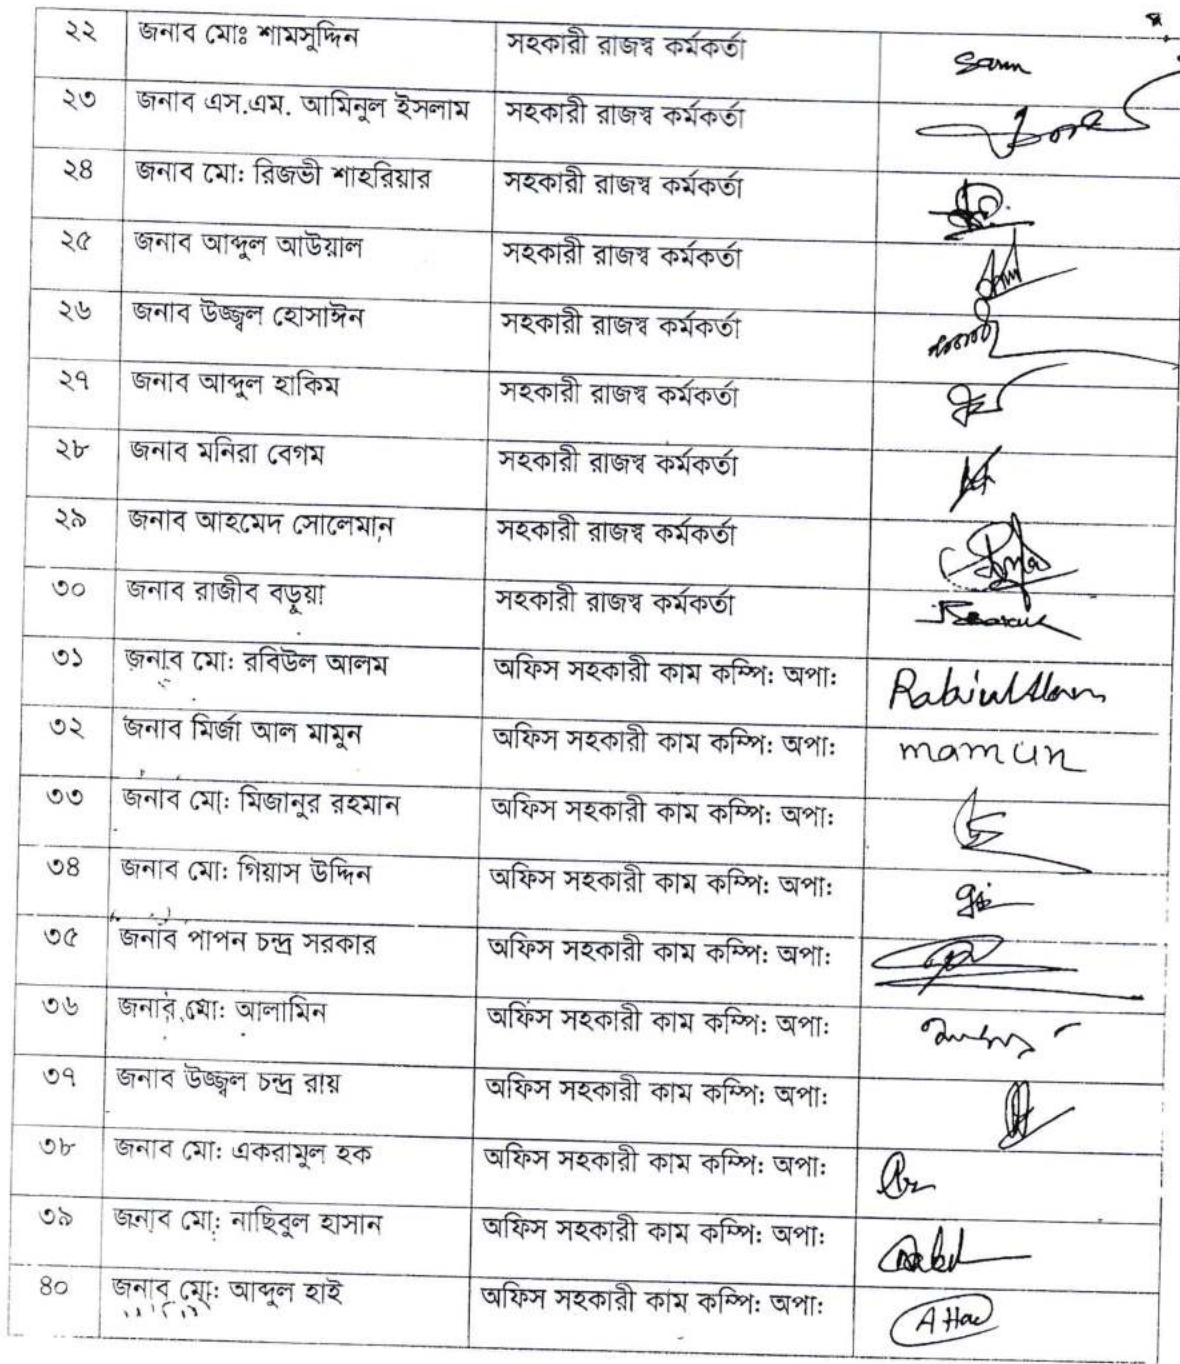 ২২ জনাব মোঃ শামসুদ্দিন সহকারী রাজস্ব কর্মকর্তা
২৩ জনাব এস.এম. আমিনুল ইসলাম সহকারী রাজস্ব কর্মকর্তা
২৪ জনাব মো: রিজভী শাহরিয়ার সহকারী রাজস্ব কর্মকর্তা
২৫ জনাব আব্দুল আউয়াল সহকারী রাজস্ব কর্মকর্তা
২৬ জনাব উজ্জ্বল হোসাঈন সহকারী রাজস্ব কর্মকর্তা
২৭ জনাব আব্দুল হাকিম সহকারী রাজস্ব কর্মকর্তা
২৮ জনাব মনিরা বেগম সহকারী রাজস্ব কর্মকর্তা
২৯ জনাব আহমেদ সোলেমান সহকারী রাজস্ব কর্মকর্তা
৩০ জনাব রাজীব বড়ূয়া সহকারী রাজস্ব কর্মকর্তা
৩১ জনাব মো: রবিউল আলম অফিস সহকারী কাম কম্পি: অপা: Rabiul Alam
৩২ জনাব মির্জা আল মামুন অফিস সহকারী কাম কম্পি: অপা: mamun
৩৩ জনাব মো: মিজানুর রহমান অফিস সহকারী কাম কম্পি: অপা:
৩৪ জনাব মো: গিয়াস উদ্দিন অফিস সহকারী কাম কম্পি: অপা:
৩৫ জনাব পাপন চন্দ্র সরকার অফিস সহকারী কাম কম্পি: অপা:
৩৬ জনাব মো: আলামিন অফিস সহকারী কাম কম্পি: অপা:
৩৭ জনাব উজ্জ্বল চন্দ্র রায় অফিস সহকারী কাম কম্পি: অপা:
৩৮ জনাব মো: একরামুল হক অফিস সহকারী কাম কম্পি: অপা:
৩৯ জনাব মো: নাছিবুল হাসান অফিস সহকারী কাম কম্পি: অপা:
৪০ জনাব মো: আব্দুল হাই অফিস সহকারী কাম কম্পি: অপা: